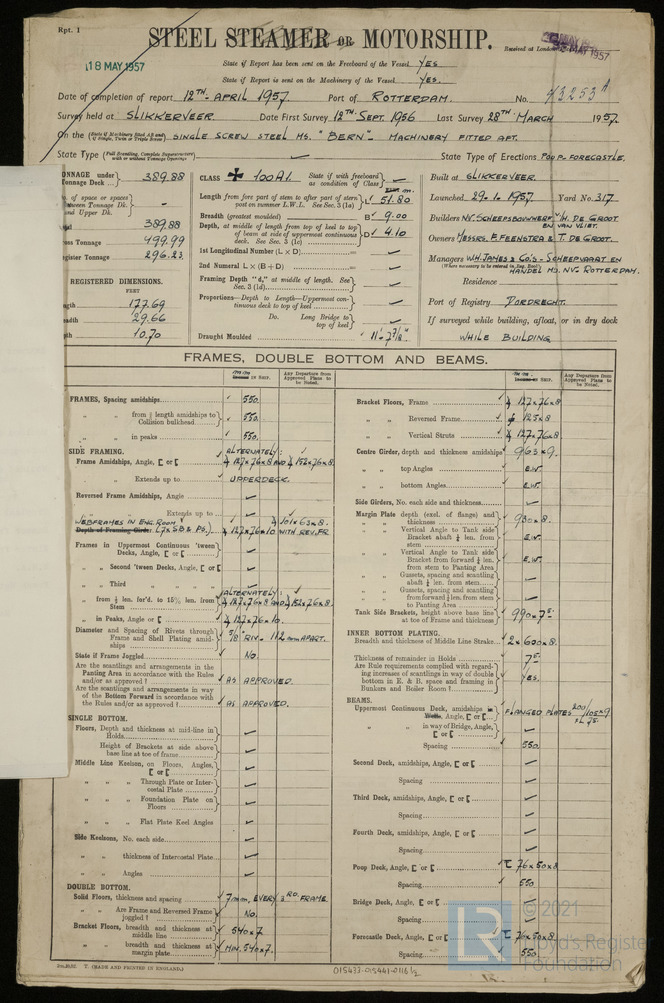 Rpt. 1
STEEL STEAMER OR MOTORSHIP.
18 MAY 1957
Received at London
State if Report has been sent on the Freeboard of the Vessel YES
State if Report is sent on the Machinery of the Vessel YES.
Date of completion of report 12TH APRIL 1957. Port of ROTTERDAM. No. 43253A
Survey held at SLIKKERVEER. Date First Survey 12TH SEPT. 1956 Last Survey 28TH MARCH 1957.
On the SINGLE SCREW STEEL MS. "BERN" - MACHINERY FITTED AFT.
State Type (Full Scantling, Complete Superstructure with or without Tonnage Openings) State Type of Erections POOP. FORECASTLE.
TONNAGE under Tonnage Deck ... 389.88
389.88
Gross Tonnage 499.99
Register Tonnage 296.23
REGISTERED DIMENSIONS.
FEET
177.69
29.66
10.70
CLASS ✠ 100A1. State if with freeboard as condition of Class
Length from fore part of stem to after part of stern post on summer L.W.L. See Sec. 3 (1a) 51.80
Breadth (greatest moulded) B 9.00
Depth, at middle of length from top of keel to top of beam at side of uppermost continuous deck. See Sec. 3 (1c) D 4.10
1st Longitudinal Number (L × D)
2nd Numeral L × (B + D)
Framing Depth "d," at middle of length. See Sec. 3 (1d)
Proportions—Depth to Length—Uppermost continuous deck to top of keel
Do. Long Bridge to top of keel
Draught Moulded 11'-7⅞"
Built at SLIKKERVEER.
Launched 29.1.1957. Yard No. 317
Builders NV. SCHEEPSBOUWWERF V/H. DE GROOT EN VAN VLIET.
Owners MESSRS. E. FEENSTRA & T. DE GROOT.
Managers WH. JAMES & CO'S - SCHEEPVAART EN HANDEL MIJ. NV. ROTTERDAM.
(Where necessary to be entered in Reg. Book)
Residence
Port of Registry DORDRECHT.
If surveyed while building, afloat, or in dry dock
WHILE BUILDING
FRAMES, DOUBLE BOTTOM AND BEAMS.
Any Departure from Approved Plans to be Noted.
Any Departure from Approved Plans to be Noted.
FRAMES, Spacing amidships 550.
" " from ⅗ length amidships to Collision bulkhead 550.
" " in peaks 550.
SIDE FRAMING. ALTERNATELY:
Frame Amidships, Angle, [ or [ 127×76×8 AND 152×76×8.
" " Extends up to UPPERDECK.
Reversed Frame Amidships, Angle
" " Extends up to
WEBFRAMES IN ENG. ROOM 101×63×8.
Depth of Framing Girder (7× SB & PS.) 127×76×10 WITH REV. FR.
Frames in Uppermost Continuous 'tween Decks, Angle, [ or [
" " Second 'tween Decks, Angle, [ or [
" " Third " " "
ALTERNATELY:
" from ⅗ len. for'd. to 15% len. from Stem 127×76×8 AND 152×76×8.
" in Peaks, Angle or [ 127×76×10.
Diameter and Spacing of Rivets through Frame and Shell Plating amidships 5/8" RIV. 112 mm APART.
State if Frame Joggled NO.
Are the scantlings and arrangements in the Panting Area in accordance with the Rules and/or as approved? AS APPROVED.
Are the scantlings and arrangements in way of the Bottom Forward in accordance with the Rules and/or as approved? AS APPROVED.
SINGLE BOTTOM.
Floors, Depth and thickness at mid-line in Holds
Height of Brackets at side above base line at toe of frame
Middle Line Keelson, on Floors, Angles, [ or [
" " " Through Plate or Intercostal Plate
" " " Foundation Plate on Floors
" " " Flat Plate Keel Angles
Side Keelsons, No. each side
" " thickness of Intercostal Plate
" " Angles
DOUBLE BOTTOM.
Solid Floors, thickness and spacing 7mm, EVERY 3RD FRAME.
" " Are Frame and Reversed Frame joggled? NO.
Bracket Floors, breadth and thickness at middle line 540×7
" " breadth and thickness at margin plate MIN. 540×7.
Bracket Floors, Frame 127×76×8.
" " Reversed Frame 125×8
" " Vertical Struts 127×76×8.
Centre Girder, depth and thickness amidships 963×9.
" " top Angles E.W.
" " bottom Angles E.W.
Side Girders, No. each side and thickness
Margin Plate depth (excl. of flange) and thickness 930×8.
" " Vertical Angle to Tank side Bracket abaft ¼ len. from stem E.W.
" " Vertical Angle to Tank side Bracket from forward ¼ len. from stem to Panting Area E.W.
" " Gussets, spacing and scantling abaft ¼ len. from stem
" " Gussets, spacing and scantling from forward ¼ len. from stem to Panting Area
Tank Side Brackets, height above base line at toe of Frame and thickness 990×7⁵.
INNER BOTTOM PLATING.
Breadth and thickness of Middle Line Strake 2×600×8.
Thickness of remainder in Holds 7⁵
Are Rule requirements complied with regarding increases of scantlings in way of double bottom in E. & B. space and framing in Bunkers and Boiler Room? YES.
BEAMS.
Uppermost Continuous Deck, amidships in Wells, Angle, [ or [ FLANGED PLATES
" " in way of Bridge, Angle, [ or [
Spacing 550.
Second Deck, amidships, Angle, [ or [
Spacing
Third Deck, amidships, Angle, [ or [
Spacing
Fourth Deck, amidships, Angle, [ or [
Spacing
Poop Deck, Angle, [ or [ 76×50×8
Spacing 550.
Bridge Deck, Angle, [ or [
Spacing
Forecastle Deck, Angle, [ or [ 76×50×8.
Spacing 550.
T. (MADE AND PRINTED IN ENGLAND.)
015433-015441-0116 1/2
LR
© 2021
Lloyd's Register
Foundation